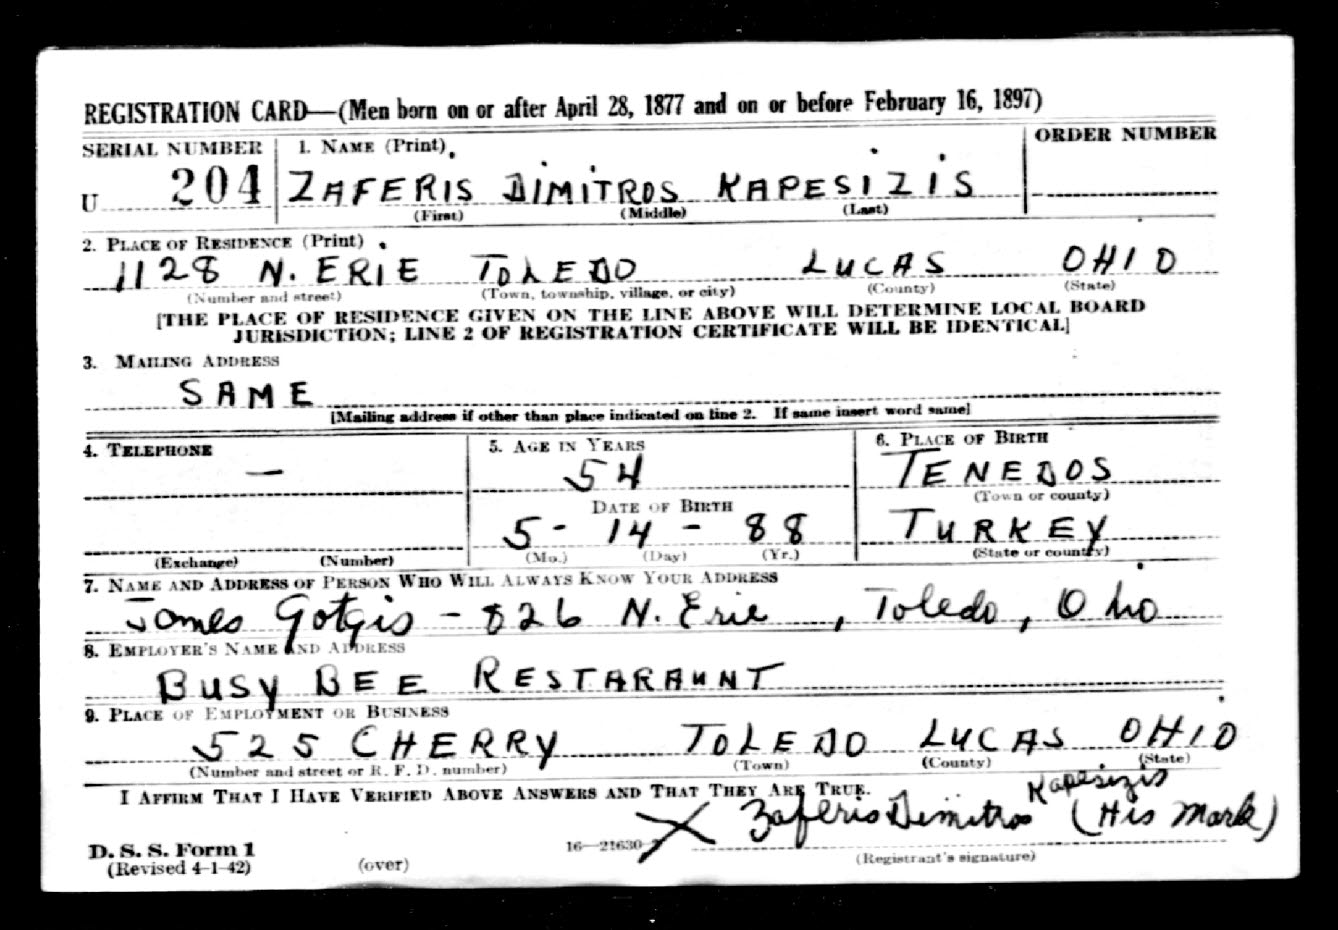 REGISTRATION CARD—(Men born on or after April 28, 1877 and on or before February 16, 1897)
SERIAL NUMBER 1. NAME (Print) ORDER NUMBER
U 204 ZAFERIS DIMITROS KAPESIZIS
(First) (Middle) (Last)
2. PLACE OF RESIDENCE (Print)
1128 N. ERIE TOLEDO LUCAS OHIO
(Number and street) (Town, township, village, or city) (County) (State)
[THE PLACE OF RESIDENCE GIVEN ON THE LINE ABOVE WILL DETERMINE LOCAL BOARD
JURISDICTION; LINE 2 OF REGISTRATION CERTIFICATE WILL BE IDENTICAL]
3. MAILING ADDRESS
SAME
[Mailing address if other than place indicated on line 2. If same insert word same]
4. TELEPHONE 5. AGE IN YEARS 6. PLACE OF BIRTH
— 54 TENEDOS
(Town or county)
DATE OF BIRTH
5 - 14 - 88 TURKEY
(Exchange) (Number) (Mo.) (Day) (Yr.) (State or country)
7. NAME AND ADDRESS OF PERSON WHO WILL ALWAYS KNOW YOUR ADDRESS
James Gotgis - 826 N. Erie, Toledo, Ohio
8. EMPLOYER'S NAME AND ADDRESS
BUSY BEE RESTARAUNT
9. PLACE OF EMPLOYMENT OR BUSINESS
525 CHERRY TOLEDO LUCAS OHIO
(Number and street or R. F. D. number) (Town) (County) (State)
I AFFIRM THAT I HAVE VERIFIED ABOVE ANSWERS AND THAT THEY ARE TRUE.
X Zaferis Dimitros Kapesizis (His Mark)
D. S. S. Form 1 16—21630-2 (Registrant's signature)
(Revised 4-1-42) (over)